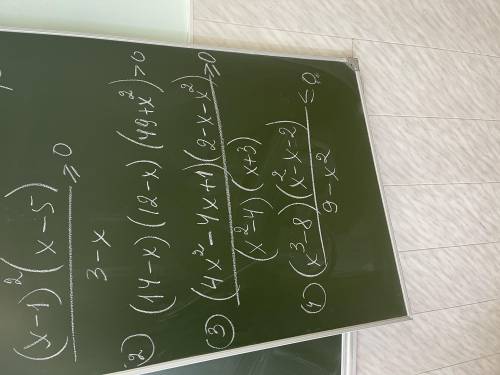 (x-1)²(x-5)
3-x
≥0
(2) (14-x)(12-x)(49+x²)>0
(3) (4x²-4x+1)(2-x-x²)
(x²-4)(x+3)
≥0
(4) (x³-8)(x²-x-2)
9-x²
≤0